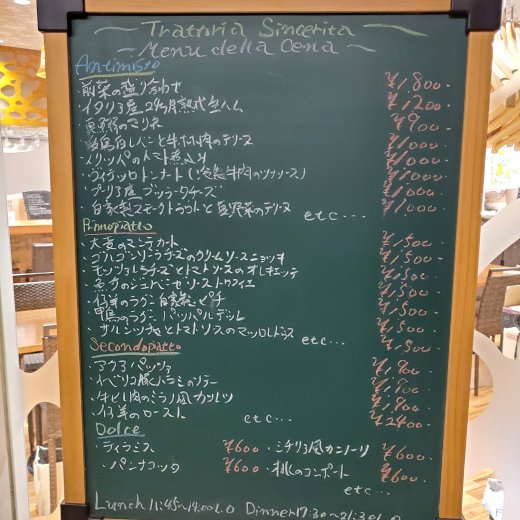 Trattoria Sincerita
Menu della Cena
Antimisto
・前菜の盛り合わせ ¥1,800
・イタリア産24ヶ月熟成生ハム ¥1200
マリネ ¥900
白レバーと牛ホホ肉のテリーヌ ¥1000
・トリッパのトマト煮込み ¥1000
・ヴィテッロトンナート(冷製牛肉のツナソース) ¥1000
・プーリア産ブッラータチーズ ¥1000
・自家製スモークトラウトと夏野菜のテリーヌ etc... ¥1000
Primopiatto
・大麦のマンテカート ¥1,500
・ゴルゴンゾーラチーズのクリームソース ニョッキ ¥1,500
・モッツァレラチーズとトマトソースのオレキエッテ ¥1,500
ジェノベーゼソース トロフィエ ¥1,500
・仔羊のラグー 自家製ピチ ¥1,500
・鴨のラグー パッパルデッレ ¥1,500
・サルシッチャとトマトソースのマッコロドス etc... ¥1,500
Secondopiatto
アクアパッツァ ¥1,800
・イベリコ豚ハラミのソテー ¥1,900
・牛ヒレ肉のミラノ風カツレツ ¥1,900
・仔羊のロースト etc... ¥2400
Dolce
・ティラミス ¥600 ・シチリア風カンノーリ ¥600
・パンナコッタ ¥600 ・桃のコンポート ¥600
etc...
Lunch 11:45~14:00L.O Dinner 17:30~21:30L.O